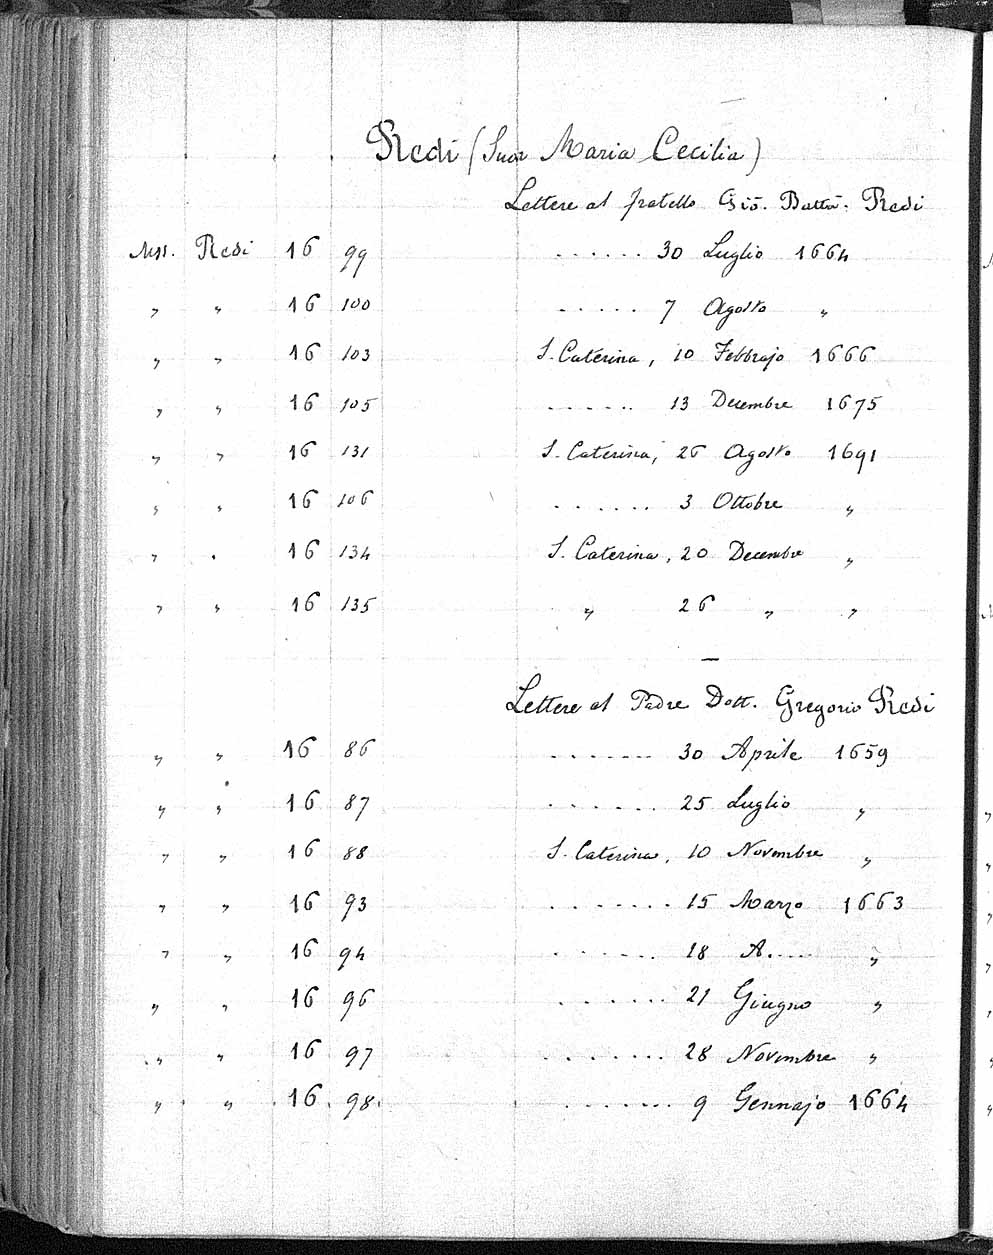 Redi (Suor Maria Cecilia)
Lettere al fratello Gio. Batta. Redi
Mss. Redi 16 99 ...... 30 Luglio 1664
" " 16 100 ..... 7 Agosto "
" " 16 103 S. Caterina, 10 Febbrajo 1666
" " 16 105 ...... 13 Decembre 1675
" " 16 131 S. Caterina, 26 Agosto 1691
" " 16 106 ...... 3 Ottobre "
" " 16 134 S. Caterina, 20 Decembre "
" " 16 135 " 26 " "
—
Lettere al Padre Dott. Gregorio Redi
" " 16 86 ....... 30 Aprile 1659
" " 16 87 ...... 25 Luglio "
" " 16 88 S. Caterina, 10 Novembre "
" " 16 93 ....... 15 Marzo 1663
" " 16 94 ...... 18 A.... "
" " 16 96 ...... 21 Giugno "
" " 16 97 ....... 28 Novembre "
" " 16 98 ....... 9 Gennajo 1664